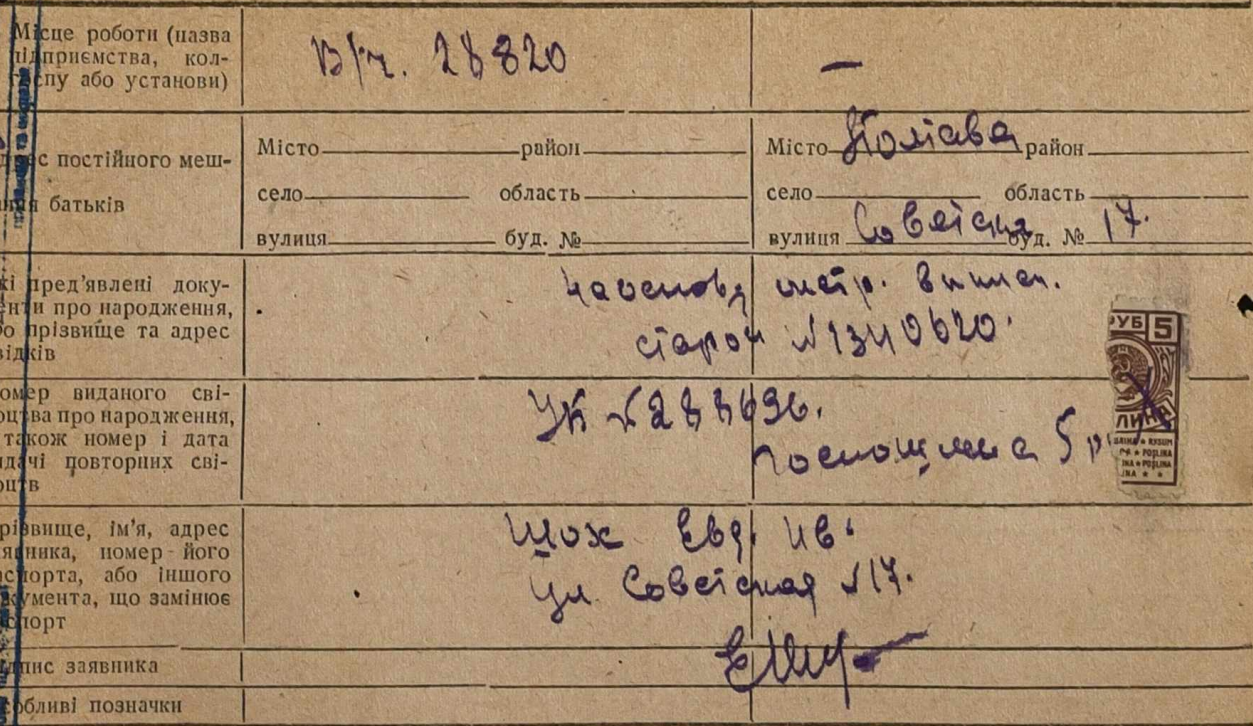 Місце роботи (назва
підприємства, кол-
госпу або установи)
В/ч. 28820
—
адрес постійного меш-
ання батьків
Місто район
село область
вулиця буд. №
Місто Полтава район
село область
вулиця Советская буд. № 17.
кі пред'явлені доку-
енти про народження,
бо прізвище та адрес
відків
на основу метр. випис.
старой №1340620.
омер виданого сві-
оцтва про народження,
також номер і дата
идачі повторних сві-
оцтв
УК №288696.
госпошлина 5 р
РУБ 5
ЛИНА
POŞLINA
різвище, ім'я, адрес
явника, номер його
аспорта, або іншого
окумента, що замінює
спорт
Шох Евд. Ив.
ул. Советская №17.
дпис заявника
собливі позначки